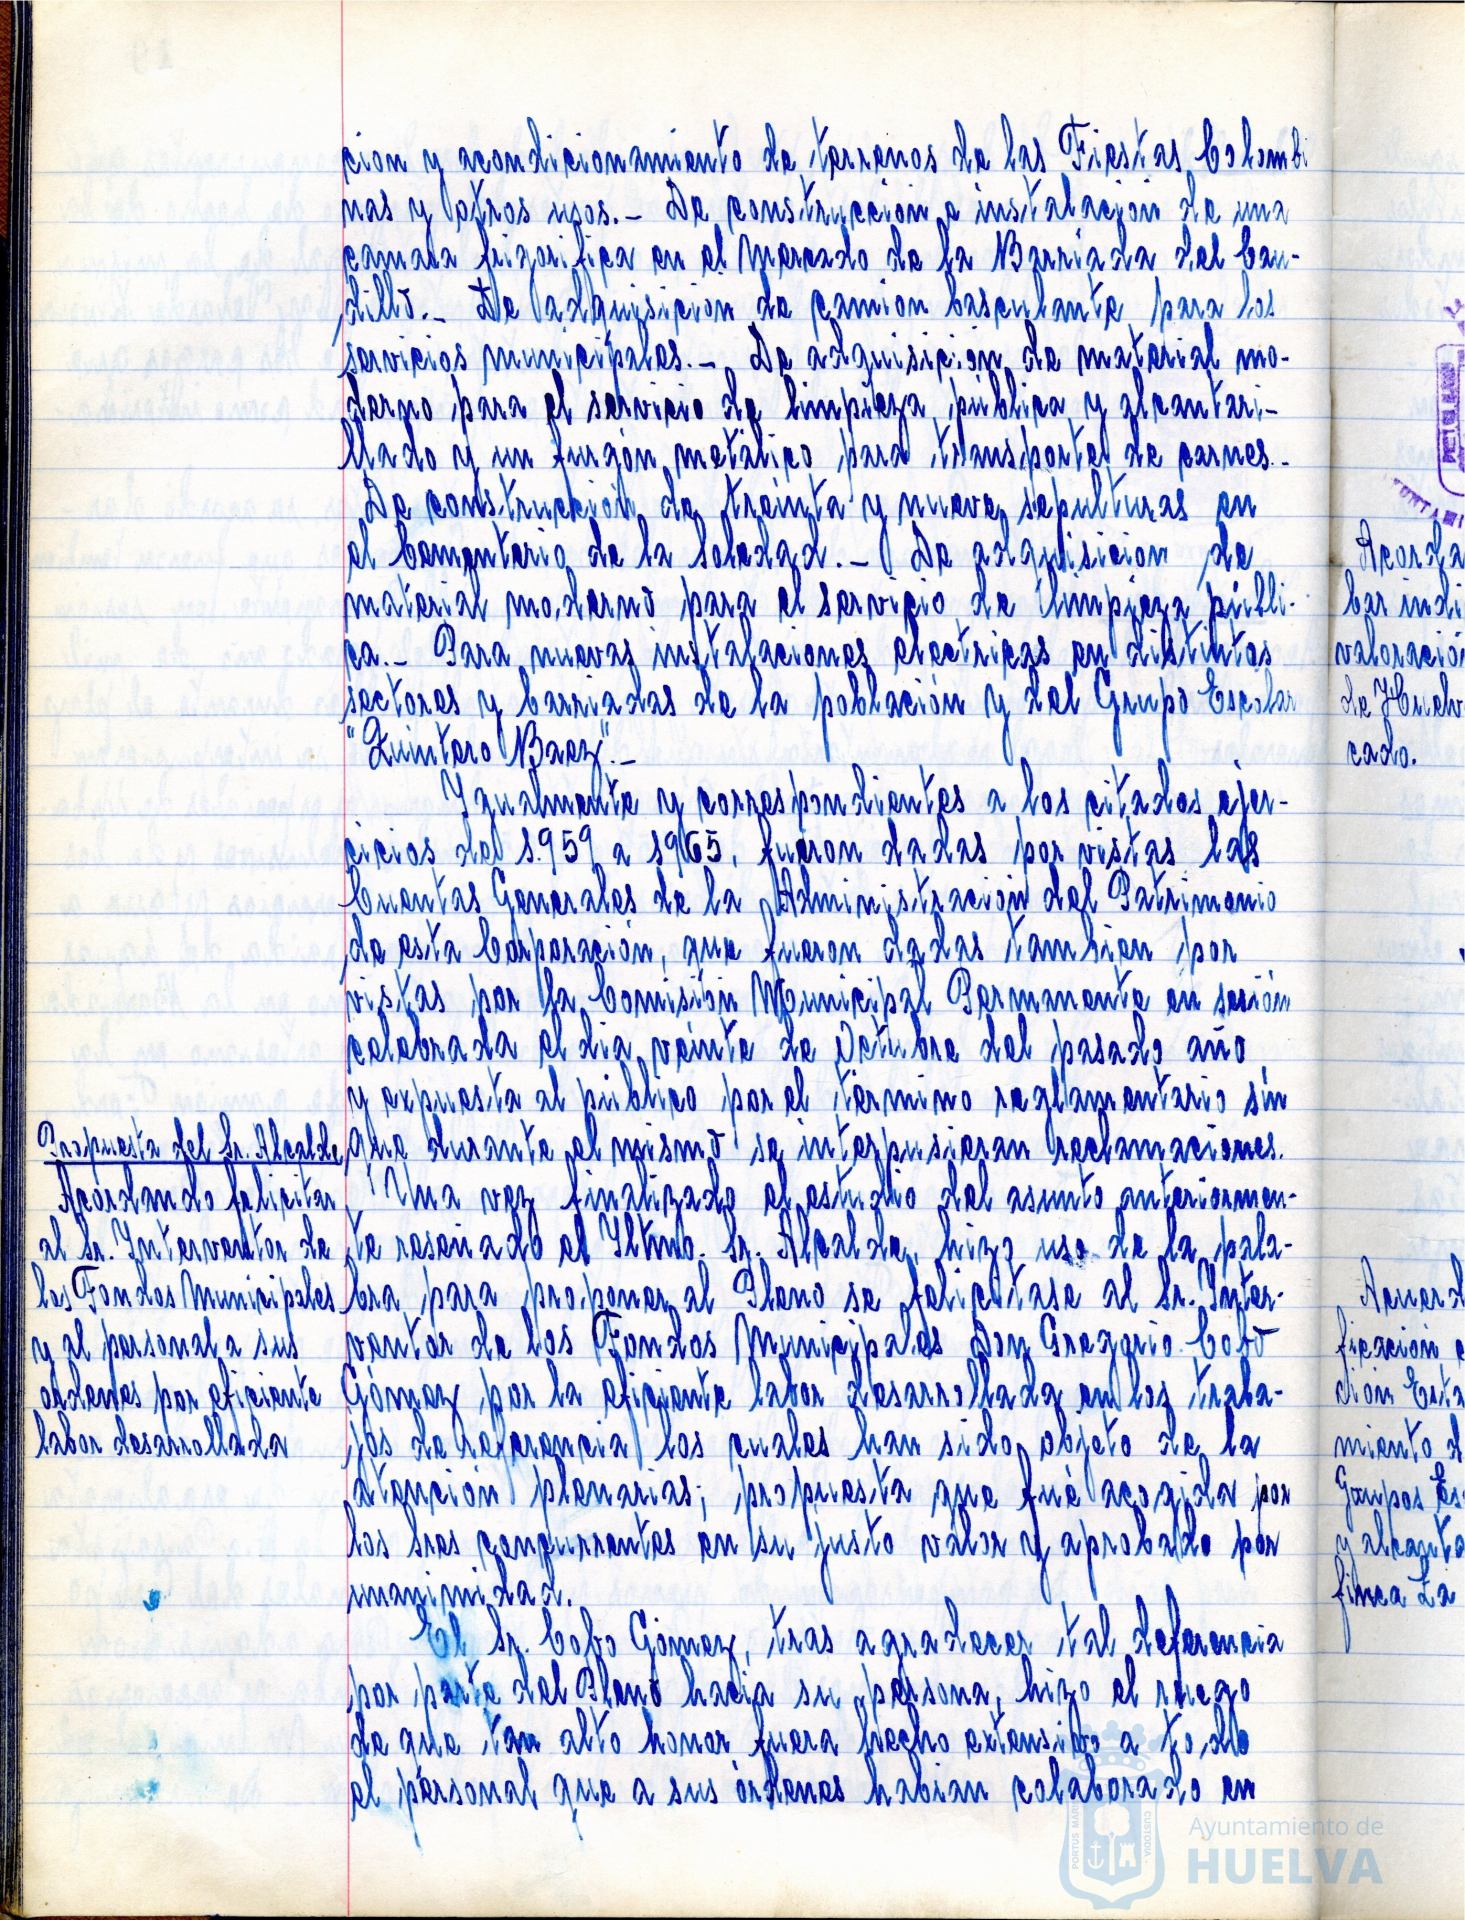 cion y acondicionamiento de terrenos de las Fiestas Colombi
nas y otros usos.- De construccion e instalación de una
camara frigorifica en el Mercado de la Barriada del Cau-
dillo.- De adquisicion de camion basculante para los
servicios municipales.- De adquisicion de material mo-
derno para el servicio de limpieza pública y alcantari-
llado y un furgón metálico para transporte de carnes.-
De construcción de treinta y nueve sepulturas en
el Cementerio de la Soledad.- De adquisicion de
material moderno para el servicio de limpieza públi-
ca.- Para nuevas instalaciones electricas en distintos
sectores y barriadas de la población y del Grupo Escolar
"Quintero Baez".-
Igualmente y correspondientes a los citados ejer-
cicios de 1.959 a 1965, fueron dadas por vistas las
Cuentas Generales de la Administración del Patrimonio
de esta Corporación, que fueron dadas tambien por
vistas por la Comisión Municipal Permanente en sesión
celebrada el dia veinte de Octubre del pasado año
y expuesta al público por el término reglamentario sin
que durante el mismo se interpusieran reclamaciones.
Propuesta del Sr. Alcalde
Acordando felicitar
al Sr. Interventor de
los Fondos Municipales
y al personal a sus
ordenes por eficiente
labor desarrollada
Una vez finalizado el estudio del asunto anteriormen-
te reseñado el Iltmo. Sr. Alcalde, hizo uso de la pala-
bra para proponer al Pleno se felicitase al Sr. Inter-
ventor de los Fondos Municipales Don Gregorio Cobo
Gómez por la eficiente labor desarrollada en los traba-
jos de referencia los cuales han sido objeto de la
atención plenarias; propuesta que fué acogida por
los sres concurrentes en su justo valor y aprobado por
unanimidad.
El Sr. Cobo Gómez, tras agradecer tal deferencia
por parte del Pleno hacia su persona, hizo el ruego
de que tan alto honor fuera hecho extensivo a todo
el personal que a sus órdenes habian colaborado en
Acorda
bar indi
valoración
de Huelv
cado.
Acuerd
ficación
dión Esta
miento d
Grupos Es
y alcanta
finca La
PORTUS MARIS
CUSTODIA
Ayuntamiento de
HUELVA